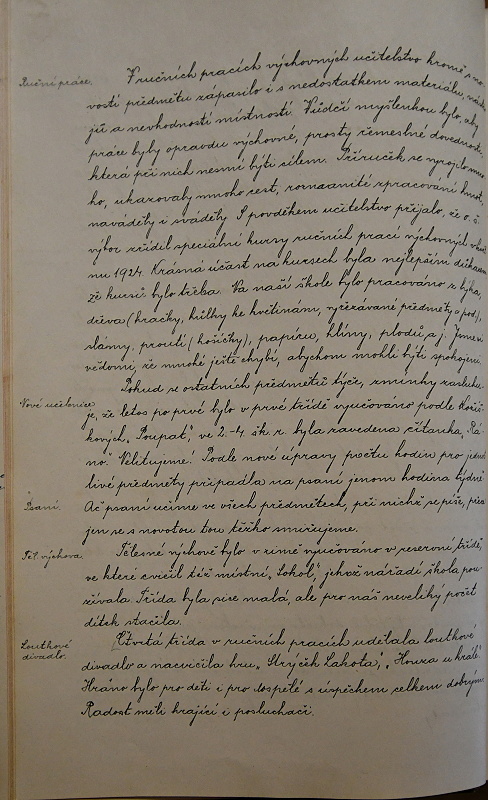 Ruční práce.
V ručních pracích výchovných učitelstvo kromě s no-
vostí předmětu zápasilo i s nedostatkem materiálu, nástro-
jů a nevhodností místností. Vůdčí myšlenkou bylo, aby
práce byly opravdu výchovné, prosty řemeslné dovednosti,
která při nich nesmí býti cílem. Příruček se vyrojilo mno-
ho, ukazovaly mnoho cest, rozmanité zpracování hmot,
naváděly i sváděly. S povděkem učitelstvo přijalo, že o. š.
výbor zřídil speciální kursy ručních prací výchovných v
nu 1924. Krásná účast na kursech byla nejlepším důkazem,
že kursů bylo třeba. Na naší škole bylo pracováno z lýka,
dřeva (hračky, kůlky ke květinám, vyřezávané předměty a pod.),
slámy, proutí (košíčky), papíru, hlíny, plodů, a j. Jsme si
vědomi, že mnohé ještě chybí, abychom mohli býti spokojeni.
Nové učebnice
Pokud se ostatních předmětů týče, zmínky zasluhu-
je, že letos po prvé bylo v prvé třídě vyučováno podle Koží-
škových „Poupat“, ve 2.-4. šk. r. byla zavedena čítanka „Rá-
no“. Nelitujeme! Podle nové úpravy počtu hodin pro jednot-
livé předměty připadla na psaní jenom hodina týdně.
Psaní.
Ač psaní učíme ve všech předmětech, při nichž se píše, přece
jen se s novotou tou těžko smiřujeme.
Těl. výchova
Tělesné výchově bylo v zimě vyučováno v reservní třídě,
ve které cvičil též místní „Sokol“, jehož nářadí škola pou-
žívala. Třída byla sice malá, ale pro náš neveliký počet
dítek stačila.
Loutkové
divadlo.
Čtvrtá třída v ručních pracích udělala loutkové
divadlo a nacvičila hru „Strýček Lakota“, „Honza u krále“.
Hráno bylo pro děti i pro dospělé s úspěchem celkem dobrým.
Radost měli hrající i posluchači.